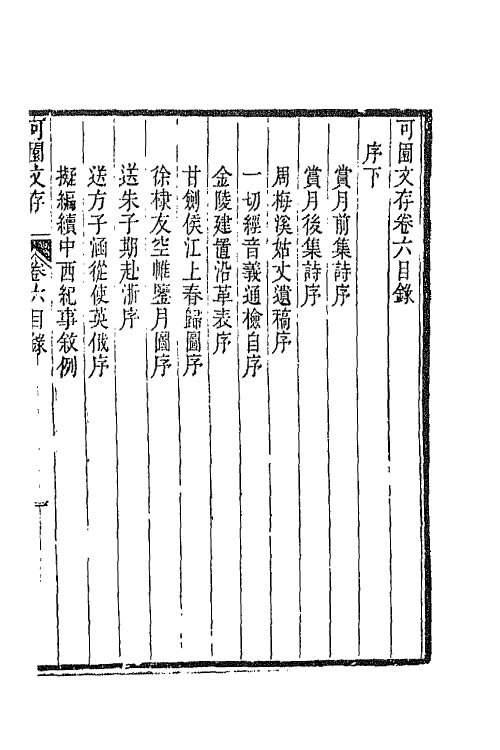 可園文存卷六目錄
序下
賞月前集詩序
賞月後集詩序
周梅溪姑丈遺稿序
一切經音義通檢自序
金陵建置沿革表序
甘劍侯江上春歸圖序
徐棣友空帷鑒月圖序
送朱子期赴浙序
送方子涵從使英俄序
擬編續中西紀事敘例
可園文存
卷六目錄